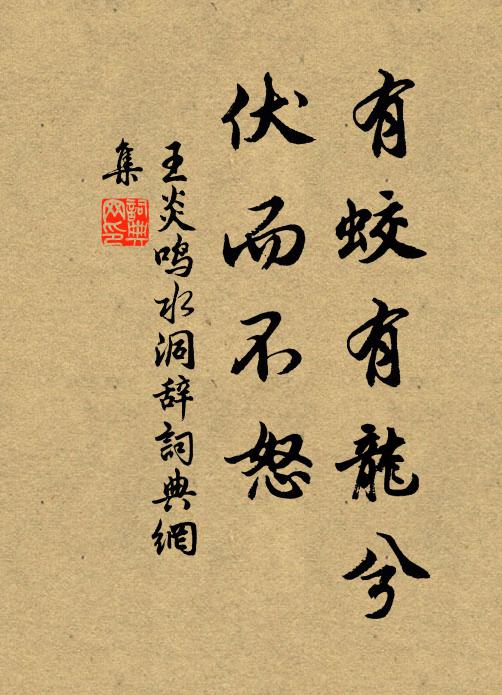 有蛟有龍兮
伏而不怒
王炎鸣水洞辞詞典網
集
詞典
网印